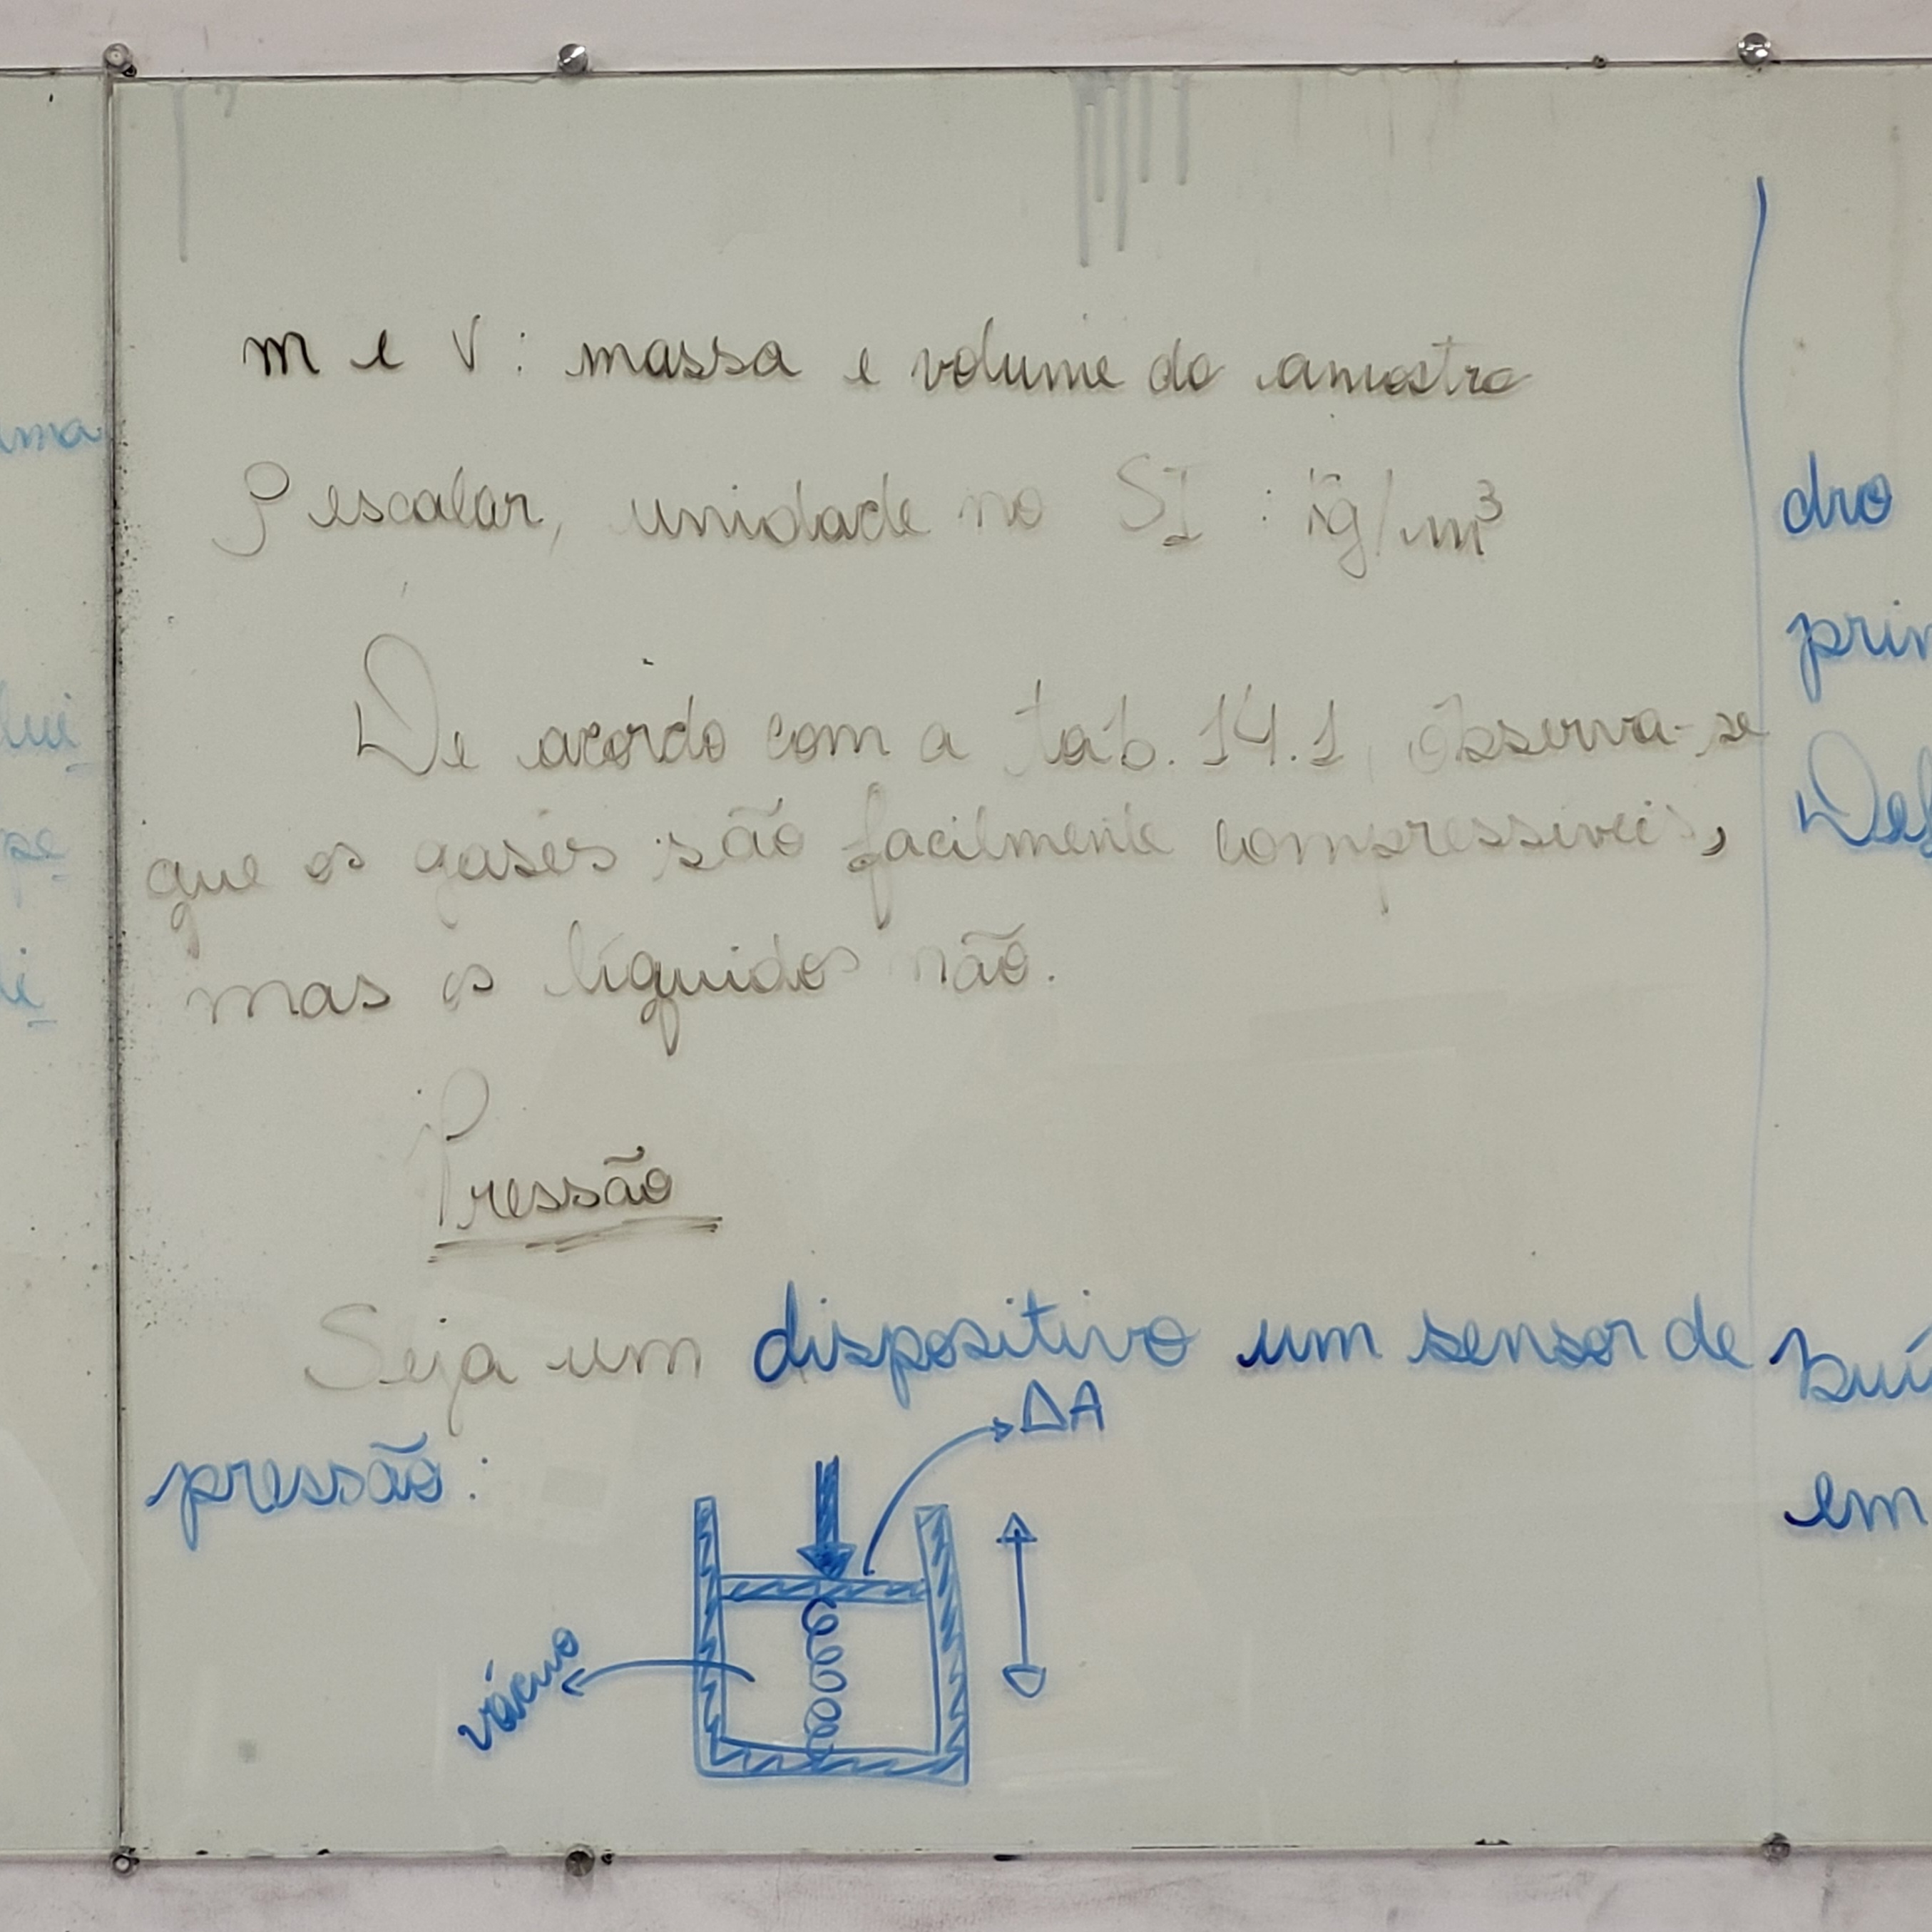 m e V: massa e volume da amostra
ρ escalar, unidade no SI : kg/m³
De acordo com a tab. 14.1, observa-se
que os gases são facilmente compressíveis,
mas os líquidos não.
Pressão
Seja um dispositivo um sensor de
pressão:
ΔA
vácuo
uma
pe
dro
em